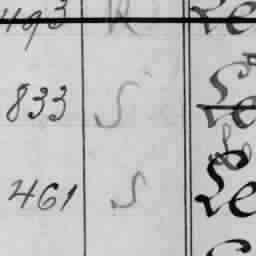 493 R Le
833 S Le
461 S Le